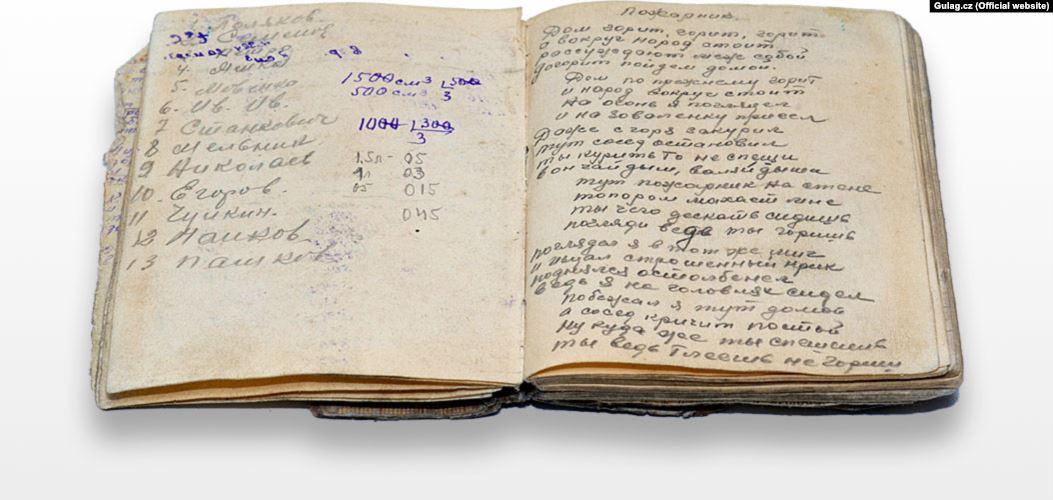 Gulag.cz (Official website)
Поляков
Семенов
4. Мишка
5. Мовенко
1500 см³ 1500
500 см³ 3
6. Ив. Ив.
7 Станкович
1000 1300
3
8 Мельник.
9 Николаев 1,5л - 05
1л 03
10. Егоров. 05 015
11 Чуйкин. 045
12 Панков
13 Пашков
Пожарник.
Дом горит, горит, горит
а вокруг народ стоит
рассуждают меж собой
догорит пойдем домой.
Дом по прежнему горит
и народ вокруг стоит
На огонь я поглядел
и на заваленку присел
Даже с горя закурил
тут сосед остановил
ты курить то не спеши
вон гай дым, валяй дыши
тут пожарник на стене
топором махает мне
ты чего дескать сидишь
погляди ведь ты горишь
поглядел я в тот же миг
и издал страшенный крик
поднялся остолбенел
ведь я на головлях сидел
побежал я тут домой
а сосед кричит постой
Ну куда же ты спешишь
ты ведь тлеешь не горишь